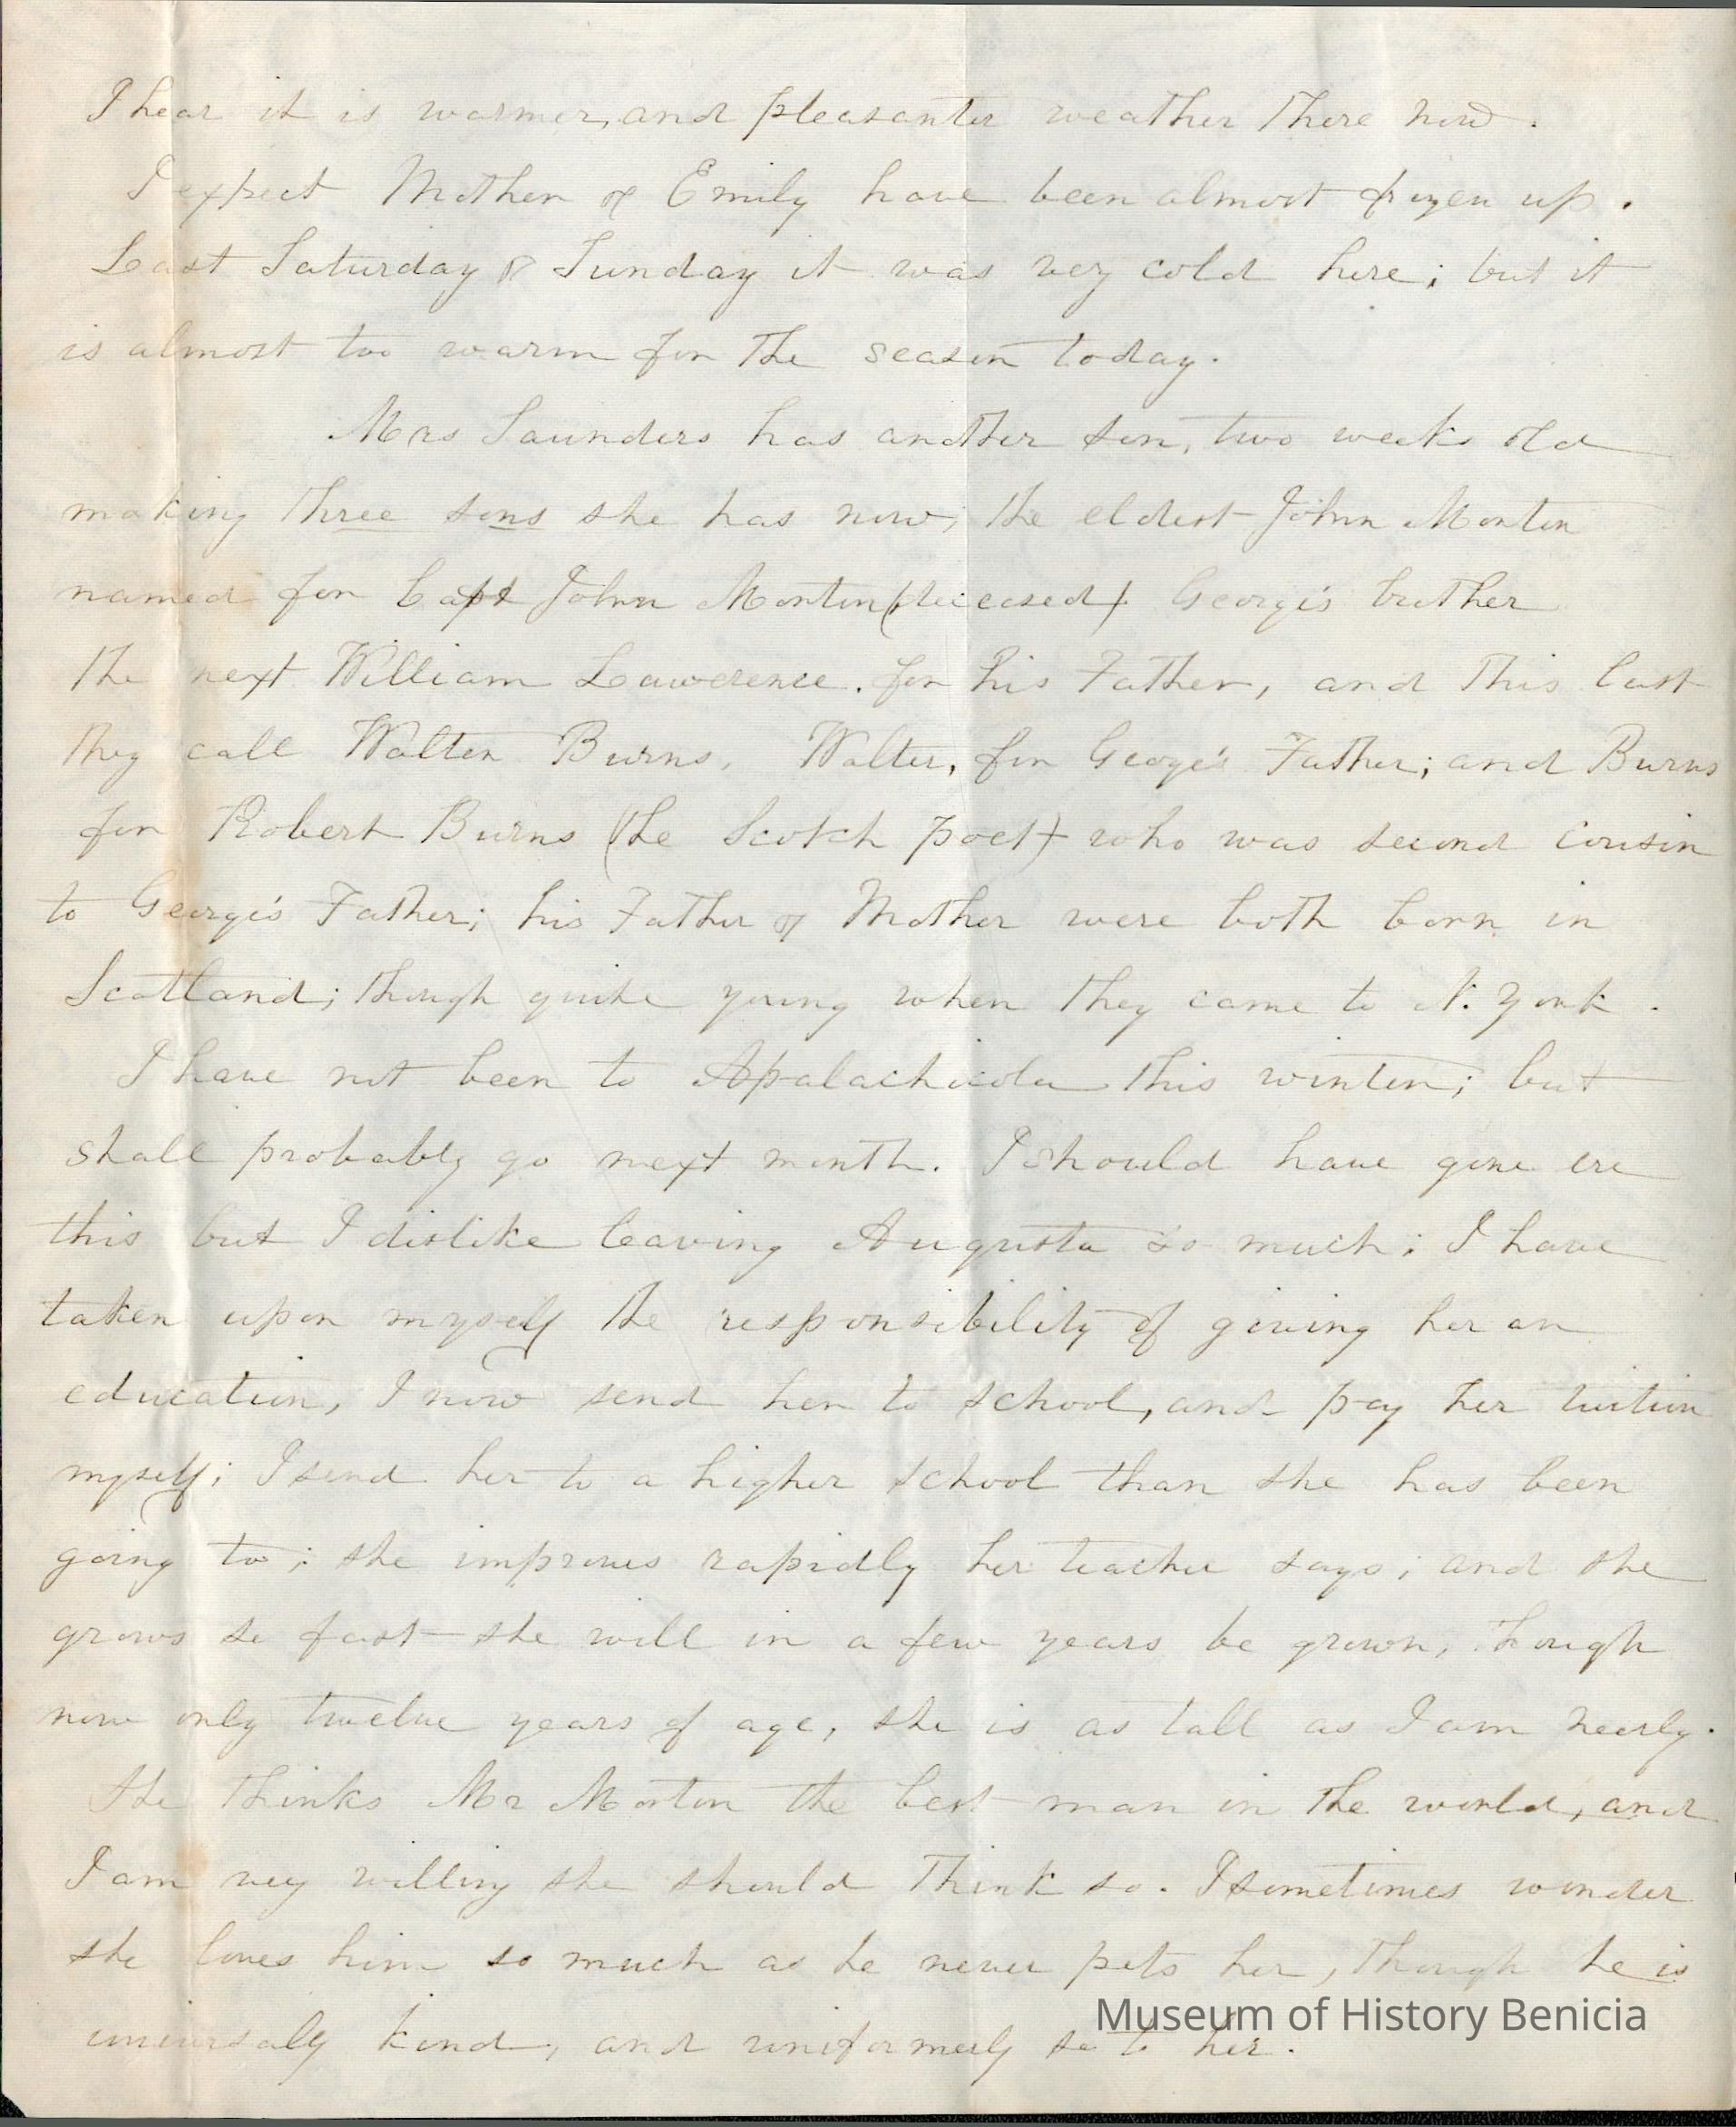 I hear it is warmer, and pleasanter weather there now.
I expect Mother & Emily have been almost frozen up.
Last Saturday & Sunday it was very cold here; but it
is almost too warm for the season today.
Mrs Saunders has another son, two weeks old
making three sons she has now; the eldest John Morton
named for Capt John Morton (deceased) George's brother
the next William Lawerence. for his Father, and this last
they call Walter Burns. Walter, for George's Father; and Burns
for Robert Burns (the Scotch poet) who was second cousin
to George's Father; his Father & Mother were both born in
Scotland; though quite young when they came to N. York.
I have not been to Apalachicola this winter; but
shall probably go next month. I should have gone ere
this but I dislike leaving Augusta so much; I have
taken upon myself the responsibility of giving her an
education, I now send her to school, and pay her tuition
myself; I send her to a higher school than she has been
going to; she improves rapidly her teacher says; and she
grows so fast she will in a few years be grown, though
now only twelve years of age, she is as tall as I am nearly.
She thinks Mr Morton the best man in the world, and
I am very willing she should think so. I sometimes wonder
she loves him so much as he never pets her, though he is
universaly kind, and uniformerly so to her.
Museum of History Benicia